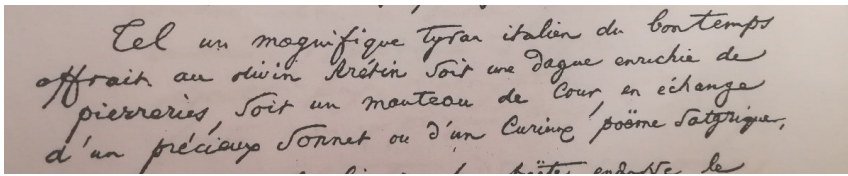 Tel un magnifique tyran italien du bon temps
offrait au divin Arétin soit une dague enrichie de
pierreries, soit un manteau de cour, en échange
d'un précieux sonnet ou d'un curieux poëme satyrique,
le